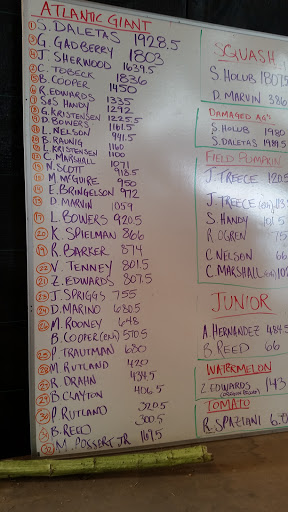 ATLANTIC GIANT
S. DALETAS 1928.5
G. GADBERRY 1803
J. SHERWOOD 1639.5
C. TOBECK 1836
B. COOPER 1450
R. EDWARDS 1335
S&S HANDY 1292
G. KRISTENSEN 1225.5
D. BOWERS 1161.5
L. NELSON 941.5
B. RAUNIG 1160
L. KRISTENSEN 1100
C. MARSHALL 1071
N. SCOTT 918.5
M. MCGUIRE 950
E. BRINGELSON 972
D. MARVIN 1059
L. BOWERS 920.5
K. SPIELMAN 866
R. BARKER 874
V. TENNEY 801.5
Z. EDWARDS 807.5
J. SPRIGGS 755
D. MARINO 680.5
M. ROONEY 648
B. COOPER (exh) 570.5
P. TRAUTMAN 630
M. RUTLAND 420
R. DRAHN 434.5
B. CLAYTON 406.5
P. RUTLAND 320.5
B. REED 300.5
M. POSSERT JR 167.5
SQUASH
S. HOLUB 1807.5
D. MARVIN 386
DAMAGED AG'S
S. HOLUB 1980
S. DALETAS 1989.5
FIELD PUMPKIN
J. TREECE 120.5
J. TREECE (exh) 113.
S. HANDY 101.5
R. OGREN 75
C. NELSON 66
C. MARSHALL (exh) 102
JUNIOR
A. HERNANDEZ 484.5
B. REED 66
WATERMELON
Z. EDWARDS 143
TOMATO
R. SPAZIANI 6.